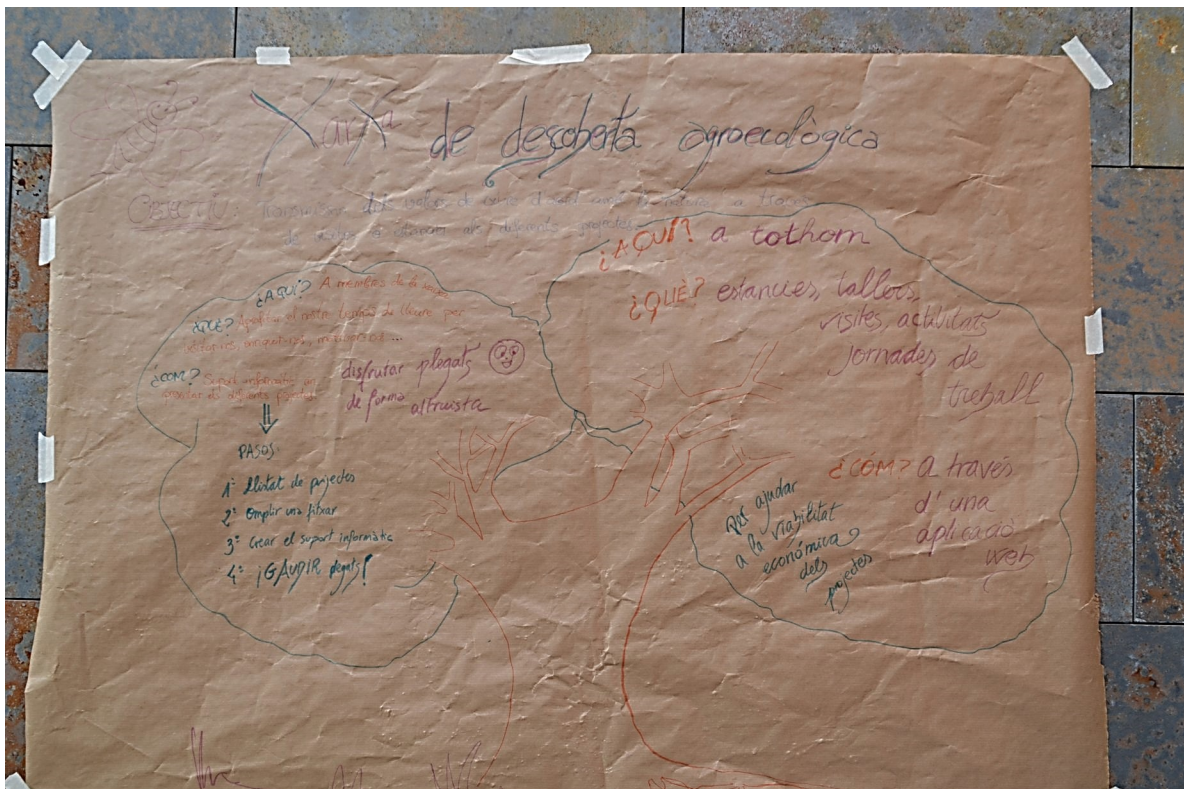 Xarxa de descoberta agroecològica
OBJECTIU: Transmissió dels valors de cura d'amor amb la natura, a través
de visites o estances als diferents projectes
¿A QUI? A membres de la xarxa
¿QUÈ? Aprofitar el nostre temps de lleure per
¿COM? Suport informàtic on
els diferents projectes
disfrutar plegats
de forma altruista
PASOS:
1º Llistat de projectes
2º Omplir una fitxa
3º Crear el suport informàtic
4º ¡GAUDIR plegats!
¿A QUI? a tothom
¿QUÈ? estancies, tallers,
visites, activitats
jornades de
treball
¿CÓM? a través
d'una
aplicació
web
per ajudar
a la viabilitat
económica
dels
projectes